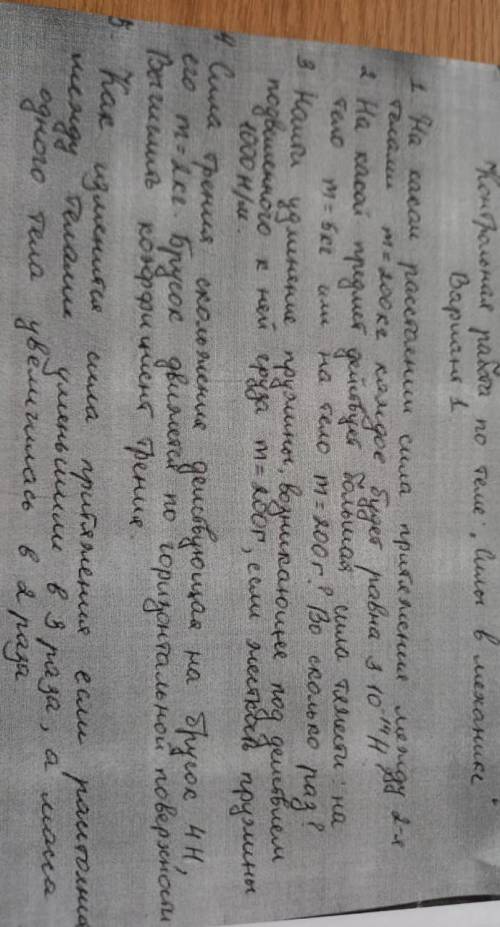 Контрольная работа по теме: „Силы в механике"
Вариант 1.
1 На каком расстоянии сила притяжения между 2-я
телами m = 200кг каждое будет равна 3 10⁻¹⁴ Н
2 На какой предмет действует большая сила тяжести: на
тело m = 5кг или на тело m = 200г? Во сколько раз?
3 Найти удлинение пружины, возникающее под действием
подвешенного к ней груза m = 200г, если жесткость пружины
1000 н/м.
4 Сила трения скольжения действующая на брусок 4Н,
его m = 2кг. Брусок движется по горизонтальной поверхности
Вычислить коэффициент трения.
5. Как изменится сила притяжения если расстояние
между телами уменьшим в 3 раза, а масса
одного тела увеличилась в 2 раза